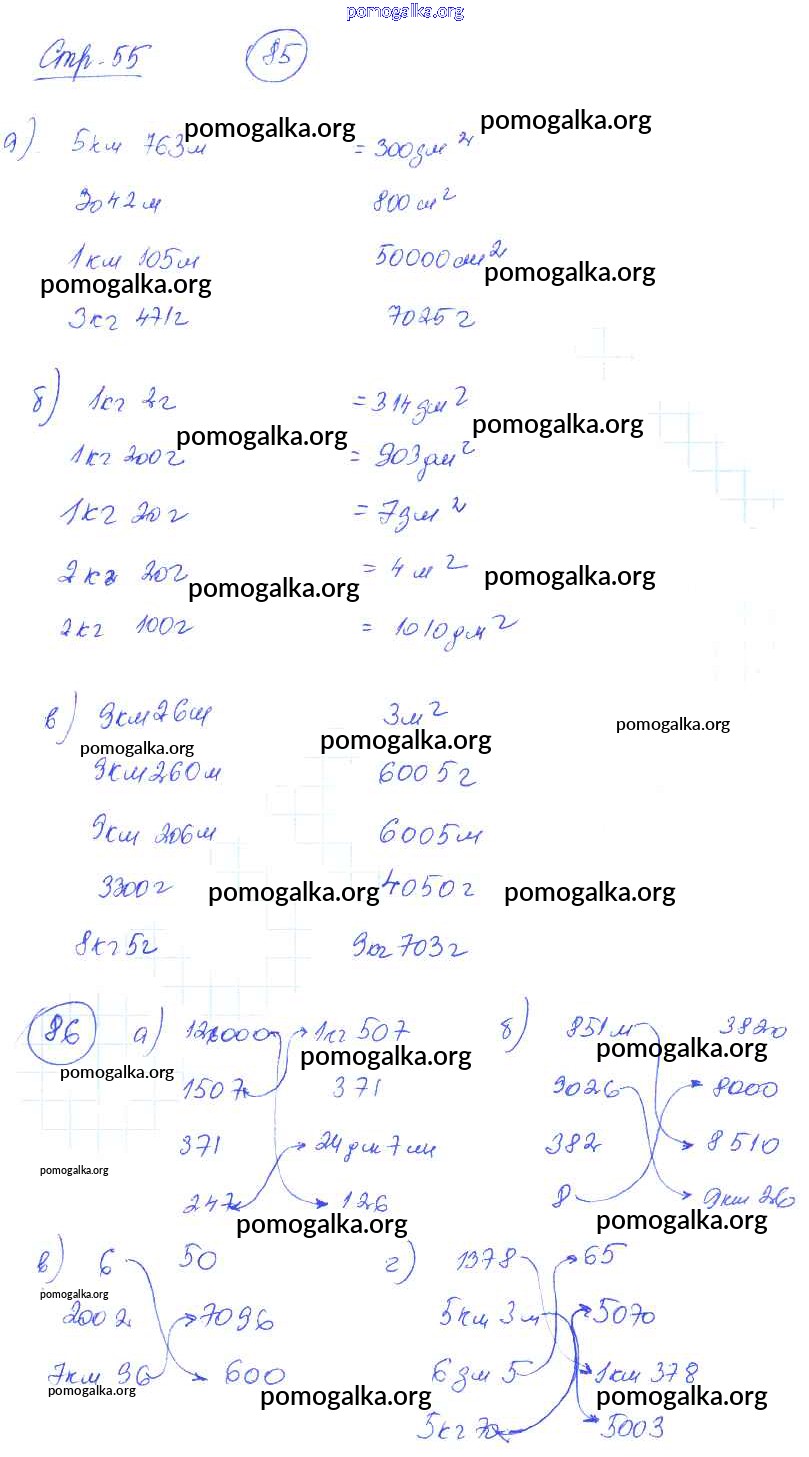 pomogalka.org
Стр. 55 85
а) 5км 763м pomogalka.org = 300дм² pomogalka.org
3042м 800см²
1км 105м 50000см² pomogalka.org
pomogalka.org
3кг 471г 7025г
б) 1кг 2г = 314дм²
pomogalka.org pomogalka.org
1кг 200г = 903дм²
1кг 20г = 7дм²
2кг 20г pomogalka.org = 4м² pomogalka.org
2кг 100г = 1010дм²
в) 9км26м 3м² pomogalka.org
pomogalka.org pomogalka.org
9км260м 6005г
9км 206м 6005м
3300г pomogalka.org 4050г pomogalka.org
8кг5г 9кг703г
86 а) 126000 1кг 507 б) 851м 3820
pomogalka.org pomogalka.org pomogalka.org
1507 371 9026 8000
371 24дм 7см 382 8510
pomogalka.org
247 126 8 9км 26
pomogalka.org pomogalka.org
в) 6 50 г) 1378 65
pomogalka.org
2002 7096 5км 3м 5070
7км 96 600 6дм 5 1км 378
pomogalka.org pomogalka.org pomogalka.org
5кг 70 5003